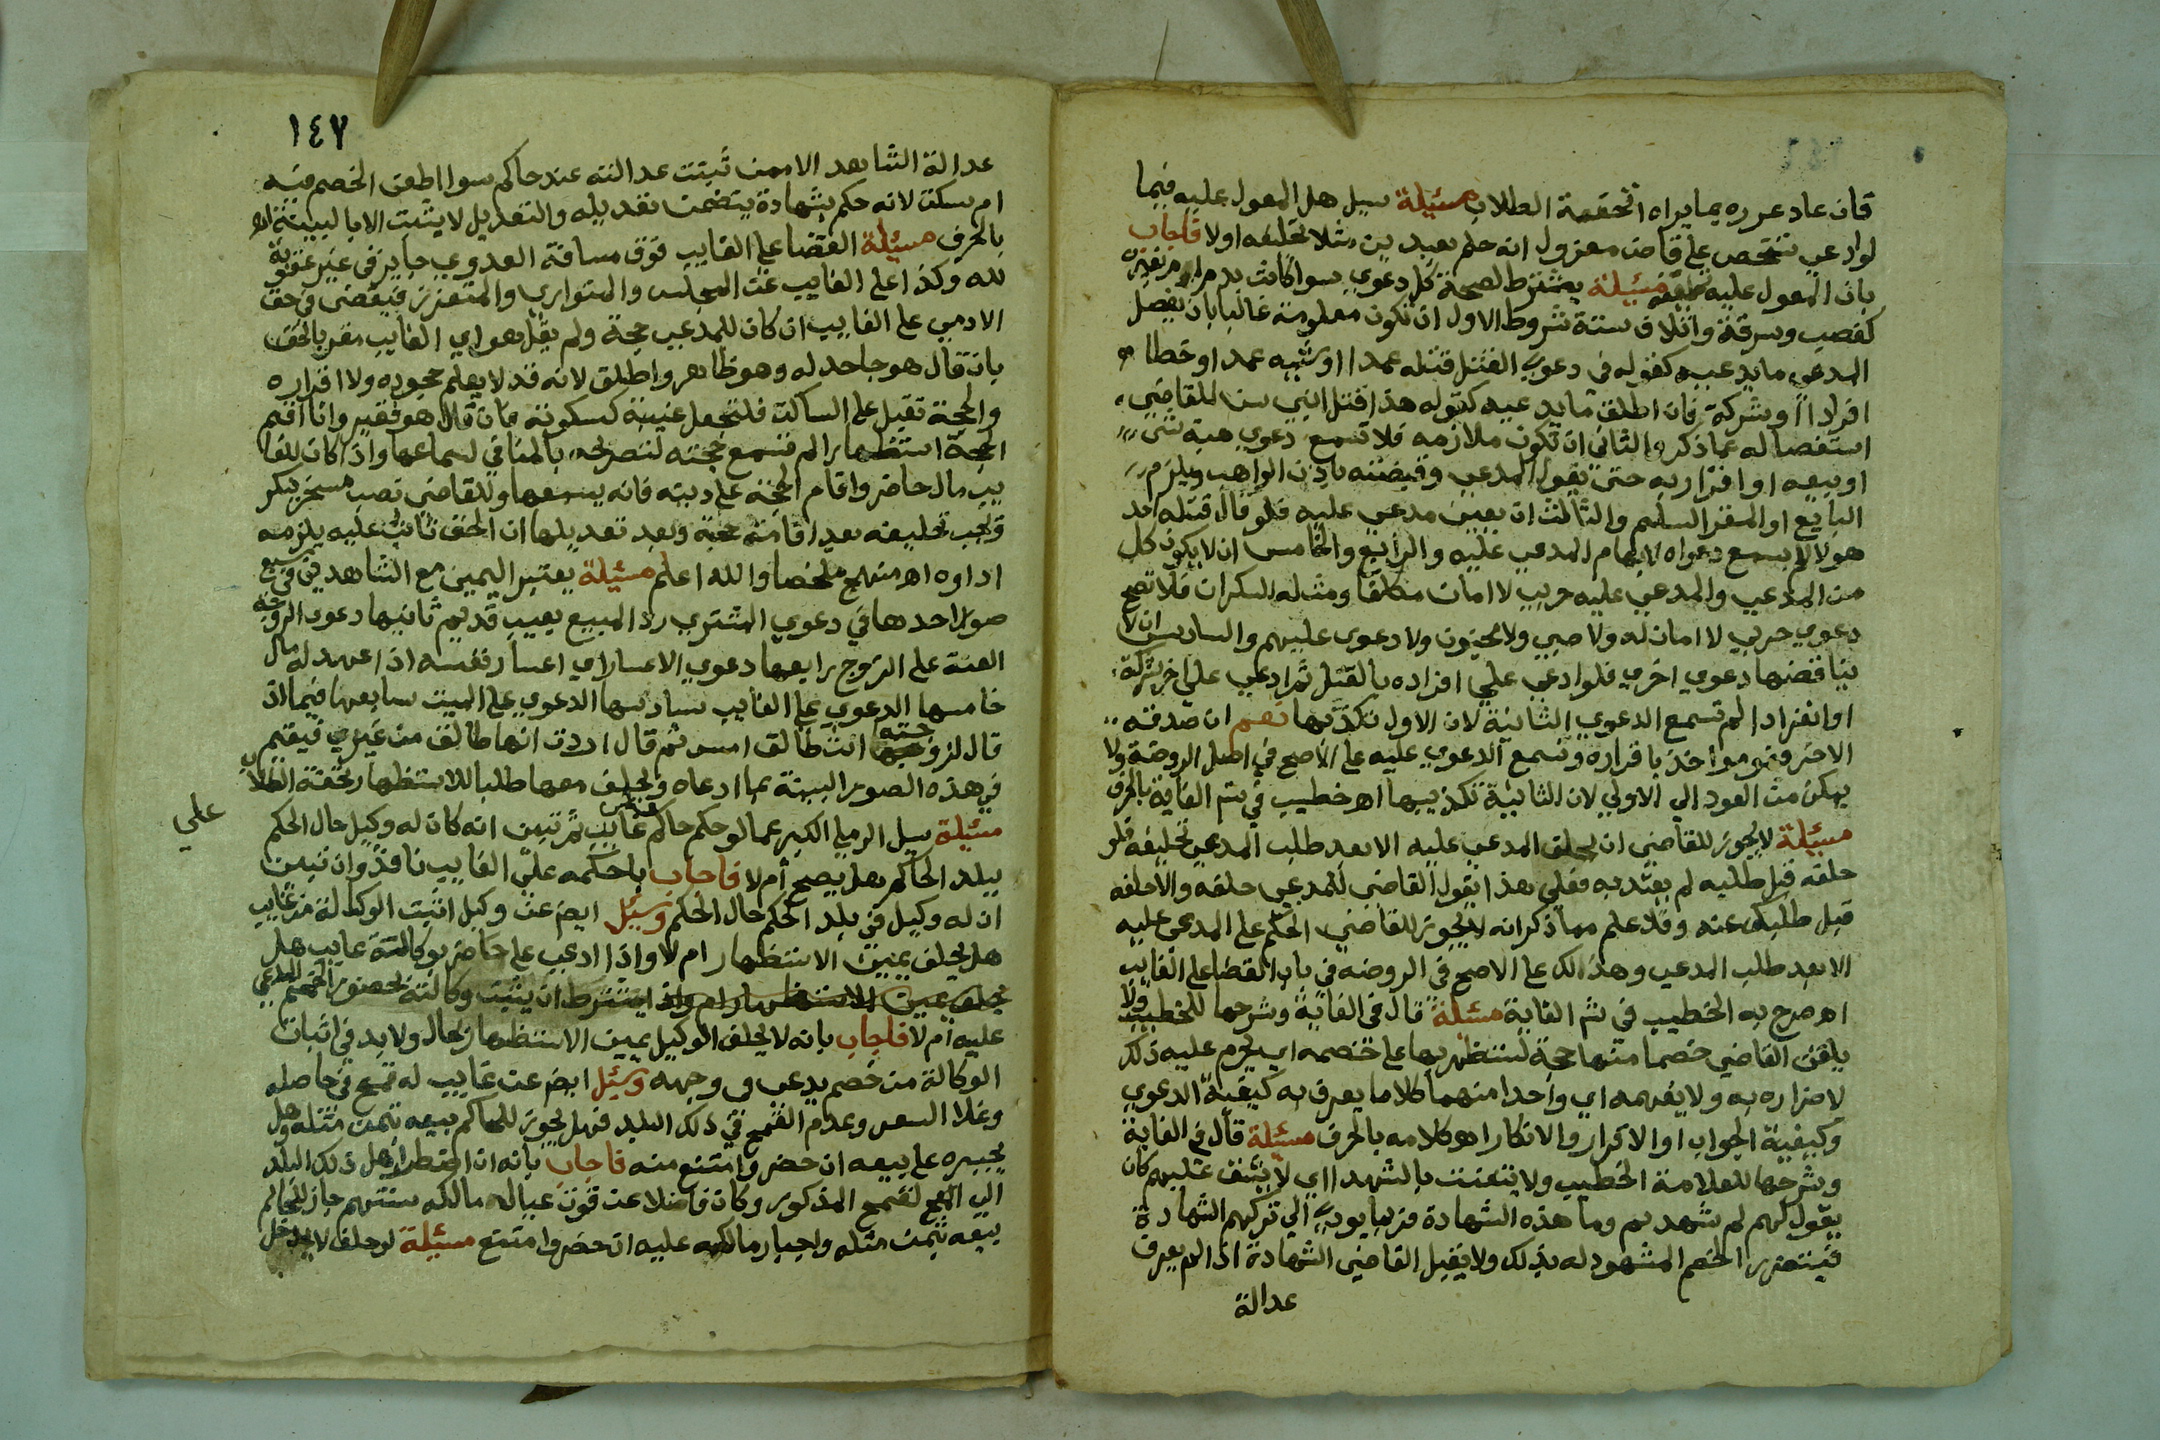 فان عاد عزره بما يراه تحفة الطلاب مسئلة سيل هل المعول عليه فيما
لو ادعي شخص علي قاض معزول انه حكم بعبدين مثلا تحليفه اولا فاجاب
بان المعول عليه تحليفه مسئلة يشترط لصحة كل دعوي سوا كانت بدم ام غيره
كغصب وسرقة واتلاف ستة شروط الاول ان تكون معلومة غالبا بان يفصل
المدعي ما يدعيه كقوله في دعوي القتل قتله عمدا او شبه عمد او خطا
افرادا او شركة فان اطلق ما يدعيه كقوله هذا قتل ابي سن للقاضي
استفصاله عما ذكر والثاني ان تكون ملازمة فلا تسمع دعوي هبة شي
او بيعه او اقرار به حتي يقول المدعي وقبضته باذن الواهب ويلزم
البايع او المقر التسليم والثالث ان يعين مدعي عليه فلو قال قتله احد
هولا لم يسمع دعواه لابهام المدعي عليه والرابع والخامس ان لا يكون كل
من المدعي والمدعي عليه حربي لا امان مكلفا ومثله السكران فلا تصح
دعوي حربي لا امان له ولا صبي ولا مجنون ولا دعوي عليهم والسادس ان لا
يناقضها دعوي اخري فلو ادعي علي افراده بالقتل ثم ادعي علي اخر شركة
او انفرادا لم تسمع الدعوي الثانية لان الاول تكذبها نعم ان صدقه
الاخر فهو مواخذ باقراره وتسمع الدعوي عليه علي الاصح في اصل الروضة ولا
يمكن من العود الي الاولي لان الثانية تكذبها اه خطيب في شم الغاية بالحرف
مسئلة لا يجوز للقاضي ان يحلف المدعي عليه الا بعد طلب المدعي تحليفه فلو
حلفه قبل طلبه لم يعتد به فعلي هذا يقول القاضي للمدعي حلفه والا حلفه
قبل طلبك عنه وقد علم مما ذكر انه لا يجوز للقاضي الحكم علي المدعي عليه
الا بعد طلب المدعي وهذا لك علي الاصح في الروضه في باب القضا علي الغايب
اه صرح به الخطيب في شم الغاية مسئلة قال في الغاية وشرحها للخطيب ولا
يلقن القاضي خصما منهما حجة ليستظهر بها علي خصمه اي يحرم عليه ذلك
لاضراره به ولا يفهمه اي واحدا منهما كلاما يعرف به كيفية الدعوي
وكيفية الجواب او الاقرار والانكار اه كلامه بالحرف مسئلة قال في الغاية
وشرحها للعلامة الخطيب ولا يتعنت بالشهدا اي لا يشق عليهم كان
يقول لهم لم شهدتم وما هذه الشهادة فربما يودي الي تركهم الشهادة
فيتضرر الخصم المشهود له بذلك ولا يقبل القاضي الشهادة اذا لم يعرف
عدالة
١٤٧
عدالة الشاهد الا ممن ثبتت عدالته عند حاكم سوا اطعن الخصم فيه
ام سكت لانه حكم بشهادة يتضمن تعديله والتعديل لا يثبت الا بالبينة اه
بالحرف مسئلة القضا علي الغايب فوق مسافة العدوي جايز في غير عقوبة
لله وكذا علي الغايب عن المجلس والمتواري والمتعزز فيقضي في حق
الادمي علي الغايب ان كان للمدعي حجة ولم يقل هو اي الغايب مقر بالحق
بان قال هو جاحد له وهو ظاهر واطلق لانه قد لا يعلم جحوده ولا اقراره
والحجة تقبل علي الساكت فلتجعل غيبته كسكوته فان قال هو فقير وانا اقيم
الحجة استظهارا لم تسمع حجته لتصريحه بالمنافي لسماعها واذا كان للغا
يب مال حاضر واقام الحجة علي دينه فانه يسمعها وللقاضي نصب مسخر ينكر
ويجب تحليفه بعد اقامة حجة وبعد تعديلها ان الحق ثابت عليه يلزمه
اداوه اه منهج ملخصا والله اعلم مسئلة يعتبر اليمين مع الشاهدين في سبع
صور احدها في دعوي المشتري رد المبيع بعيب قديم ثانيها دعوي الزوجه
العنة علي الزوج رابعها دعوي الاعسار اي اعسار نفسه اذا عهد له مال
خامسها الدعوي علي الغايب سادسها الدعوي علي الميت سابعها فيما اذا
قال لزوجته انت طالق امس ثم قال اردت انها طالق من غيري فيقيم
في هذه الصور البينة بما ادعاه ويحلف معها طلبا للاستظهار تحفة الطلاب
مسئلة سيل الرملي الكبير عما لو حكم حاكم علي غايب ثم تبين انه كان له وكيل حال الحكم
علي
ببلد الحاكم هل يصح ام لا فاجاب باحكمه علي الغايب نافذ وان تبين
ان له وكيل في بلد الحكم حال الحكم وسيل ايض عن وكيل اثبت الوكالة من غايب
هل يحلف يمين الاستظهار ام لا واذا ادعي علي حاضر بوكالته عايب هل
يشترط ان يثبت وكالته بحضور الخصم المدعي
عليه ام لا فاجاب بانه لا يحلف الوكيل يمين الاستظهار بحال ولا بد في اثبات
الوكالة من خصم يدعي في وجهه وسيل ايض عن غايب له قمح في حاصله
وغلا السعر وعدم القمح في ذلك البلد فهل يجوز للحاكم بيعه بثمن مثله وهل
يجبره علي بيعه ان حضر وامتنع منه فاجاب بانه ان اضطر اهل ذلك البلد
الي القمح المذكور وكان فاضلا عن قوت عيال مالكه سنتهم جاز للحاكم
بيعه بثمن مثله واجبار مالكه عليه ان حضر وامتنع مسئلة لو حلف لا يدخل